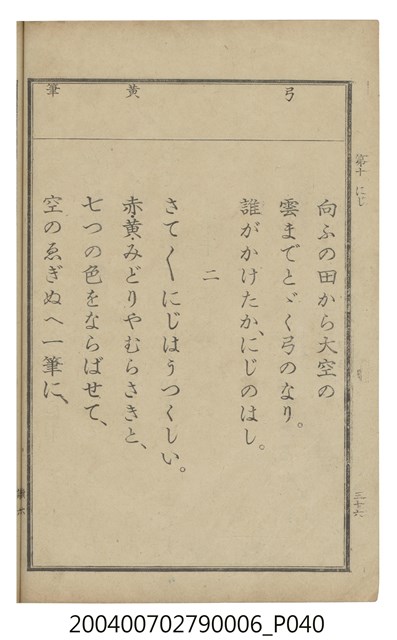 第十 にじ
三十六
弓
黄
筆
向ふの田から大空の
雲までとゞく弓のなり。
誰がかけたか、にじのはし。
二
さて〳〵にじはうつくしい。
赤黄みどりやむらさきと、
七つの色をならばせて、
空のゑぎぬへ一筆に、
200400702790006_P040